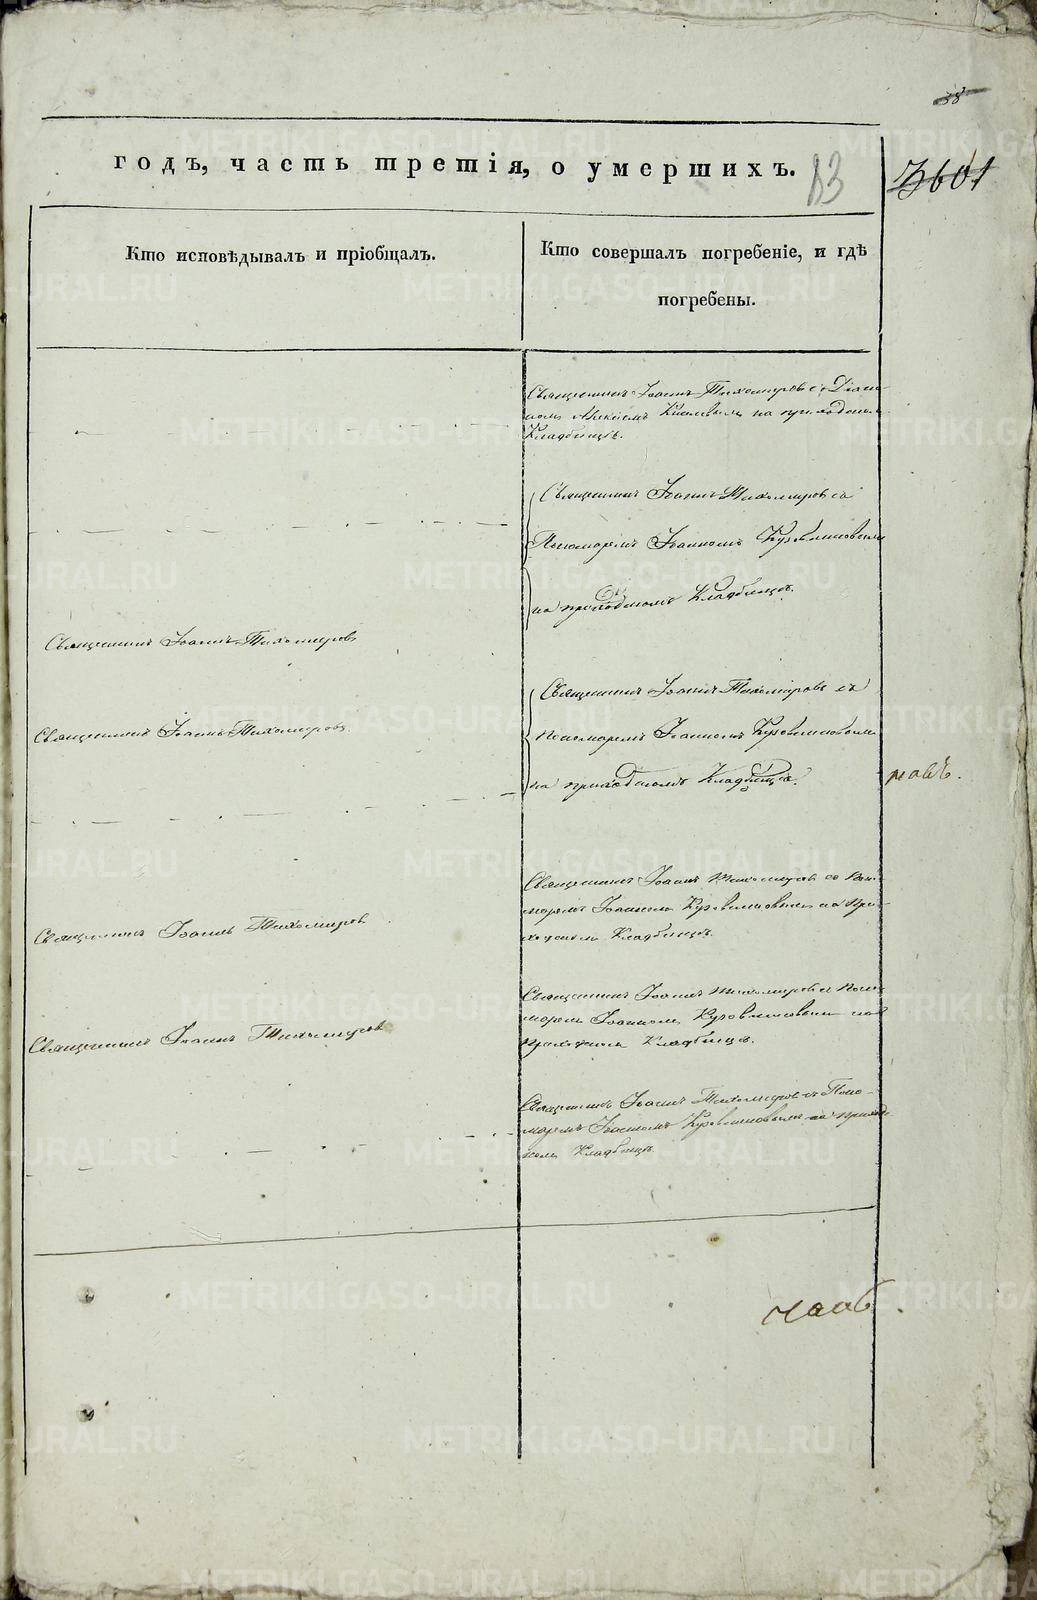 38
годъ, часть третія, о умершихъ.
83
3601
Кто исповѣдывалъ и пріобщалъ.
Кто совершалъ погребеніе, и гдѣ
погребены.
Священникъ Іоаннъ Тихомировъ съ Діако-
номъ на приходскомъ
Кладбищѣ.
Священникъ Іоаннъ Тихомировъ съ
Пономаремъ Іоанномъ
на приходскомъ Кладбищѣ.
Священникъ Іоаннъ Тихомировъ
Священникъ Іоаннъ Тихомировъ съ
Священникъ Іоаннъ Тихомировъ.
Пономаремъ Іоанномъ
на приходскомъ Кладбищѣ.
Священникъ Іоаннъ Тихомировъ съ Поно-
маремъ Іоанномъ на При-
ходскомъ Кладбищѣ.
Священникъ Іоаннъ Тихомировъ
Священникъ Іоаннъ Тихомировъ съ Поно-
маремъ Іоанномъ на
Приходскомъ Кладбищѣ.
Священникъ Іоаннъ Тихомировъ
Священникъ Іоаннъ Тихомировъ съ Поно-
маремъ Іоанномъ на приход-
скомъ Кладбищѣ.
METRIKI.GASO-URAL.RU